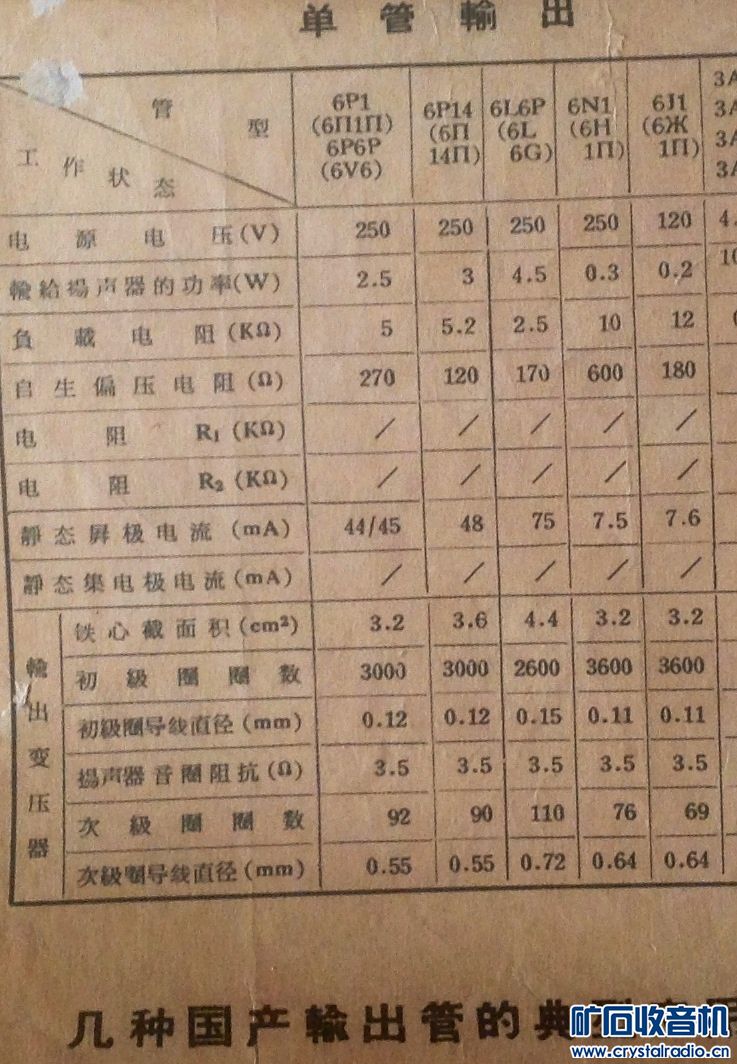 单管輸出
管型
工作状态
6P1 (6П1П) 6P6P (6V6)
6P14 (6П 14П)
6L6P (6L 6G)
6N1 (6Н 1П)
6J1 (6Ж 1П)
3A
3A
3A
3A
电源电压(V) 250 250 250 250 120 4.
輸給揚声器的功率(W) 2.5 3 4.5 0.3 0.2 10
負載电阻(KΩ) 5 5.2 2.5 10 12
自生偏压电阻(Ω) 270 120 170 600 180
电阻 R₁ (KΩ) / / / / /
电阻 R₂ (KΩ) / / / / /
靜态屛极电流(mA) 44/45 48 75 7.5 7.6
靜态集电极电流(mA) / / / / /
輸出变压器
铁心截面积(cm²) 3.2 3.6 4.4 3.2 3.2
初級圈圈数 3000 3000 2600 3600 3600
初級圈导线直径(mm) 0.12 0.12 0.15 0.11 0.11
揚声器音圈阻抗(Ω) 3.5 3.5 3.5 3.5 3.5
次級圈圈数 92 90 110 76 69
次級圈导线直径(mm) 0.55 0.55 0.72 0.64 0.64
几种国产輸出管的典
矿石收音机
www.crystalradio.cn